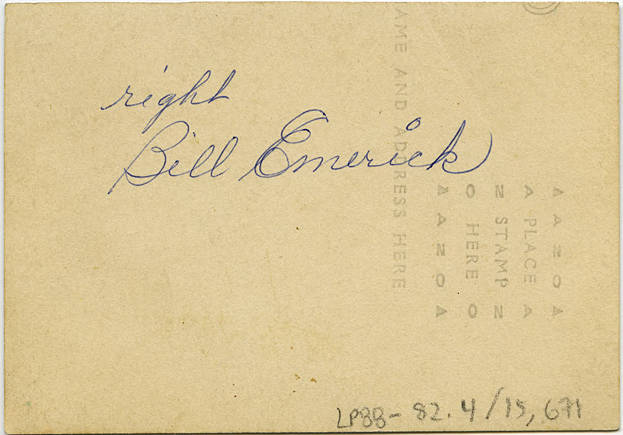 right
Bill Emerick
AME AND ADDRESS HERE
A A Z O A
A PLACE A
N STAMP N
O HERE O
A A N O A
LP88-82.4/15,671